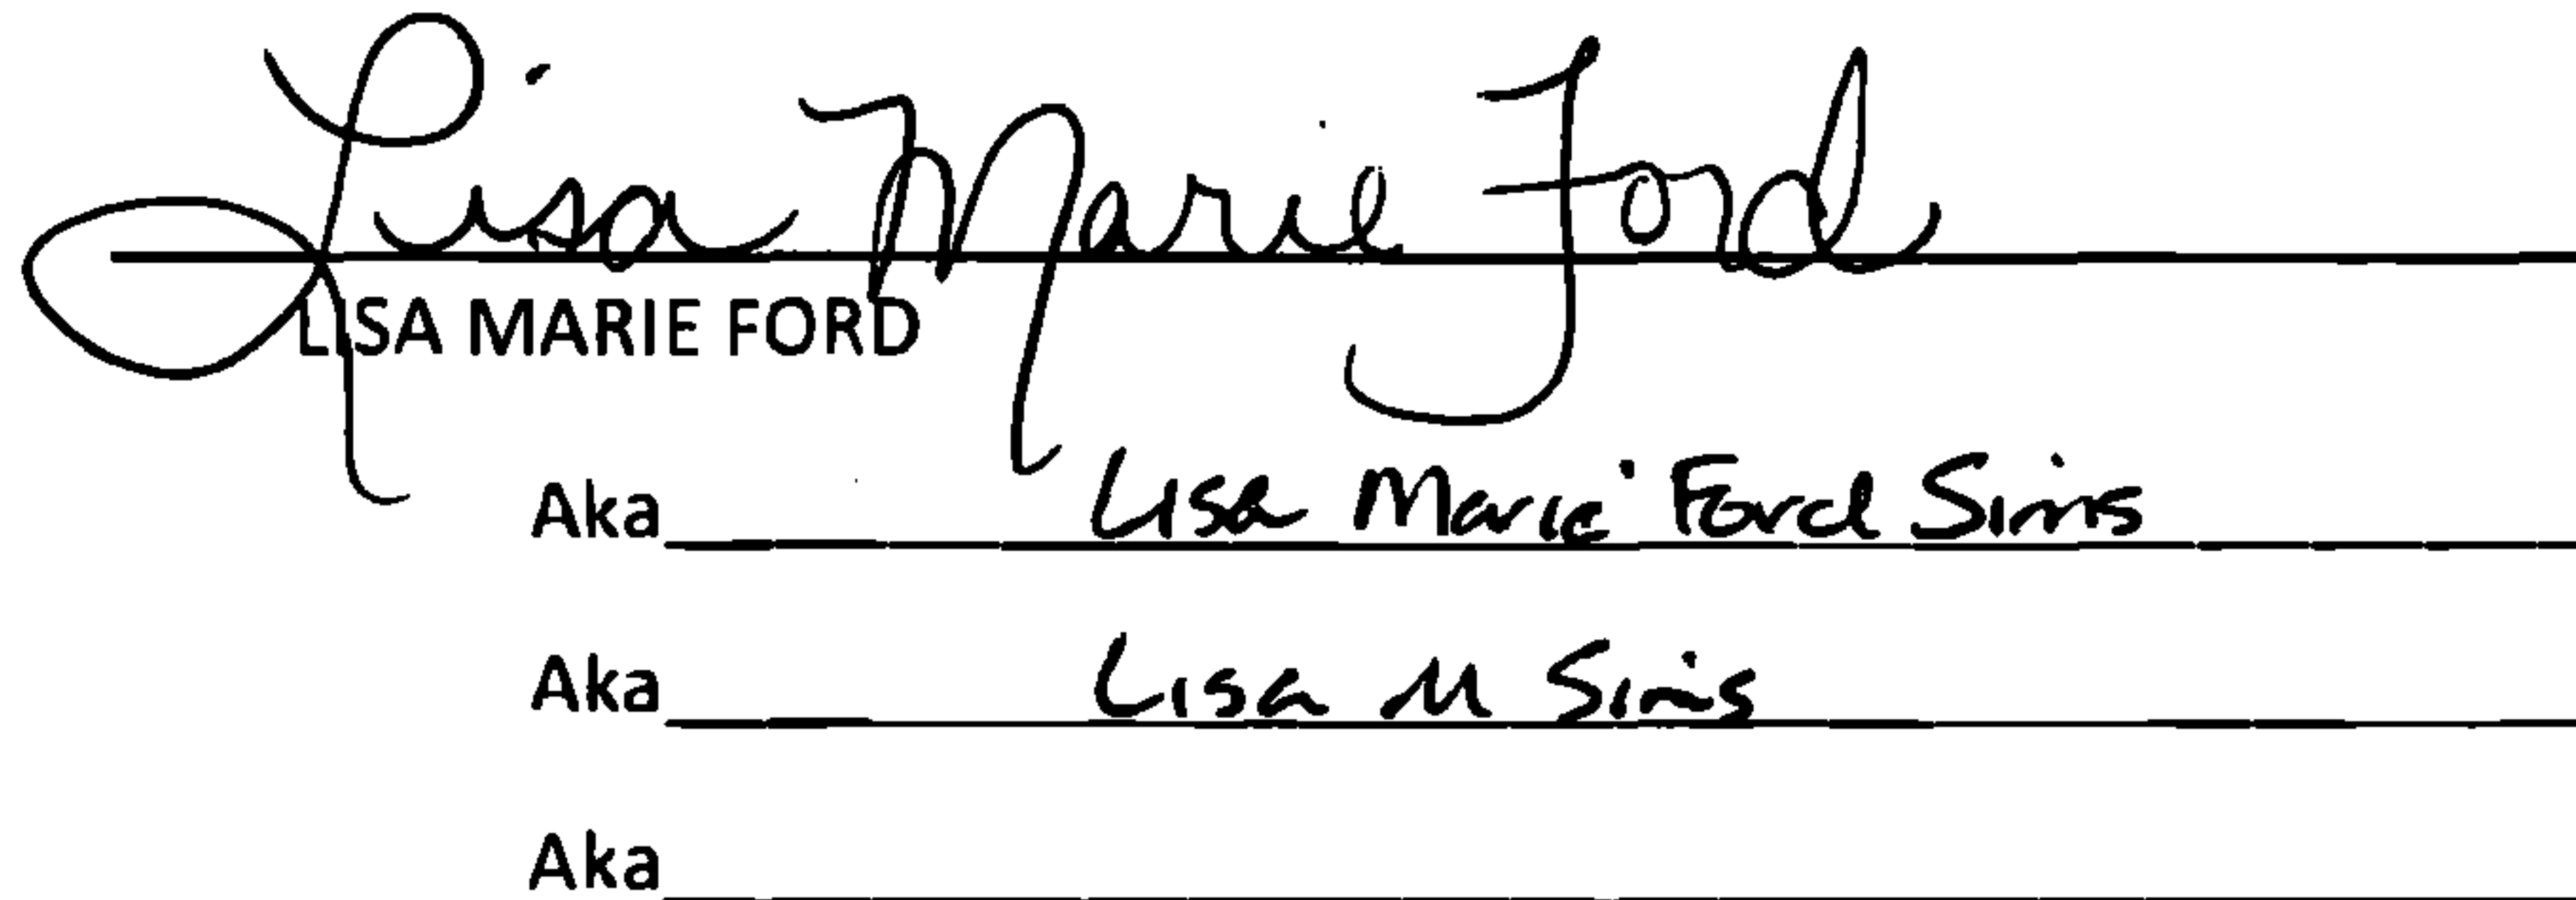 Lisa Marie Ford
LISA MARIE FORD
Aka Lisa Marie Ford Sims
Aka Lisa M Sims
Aka